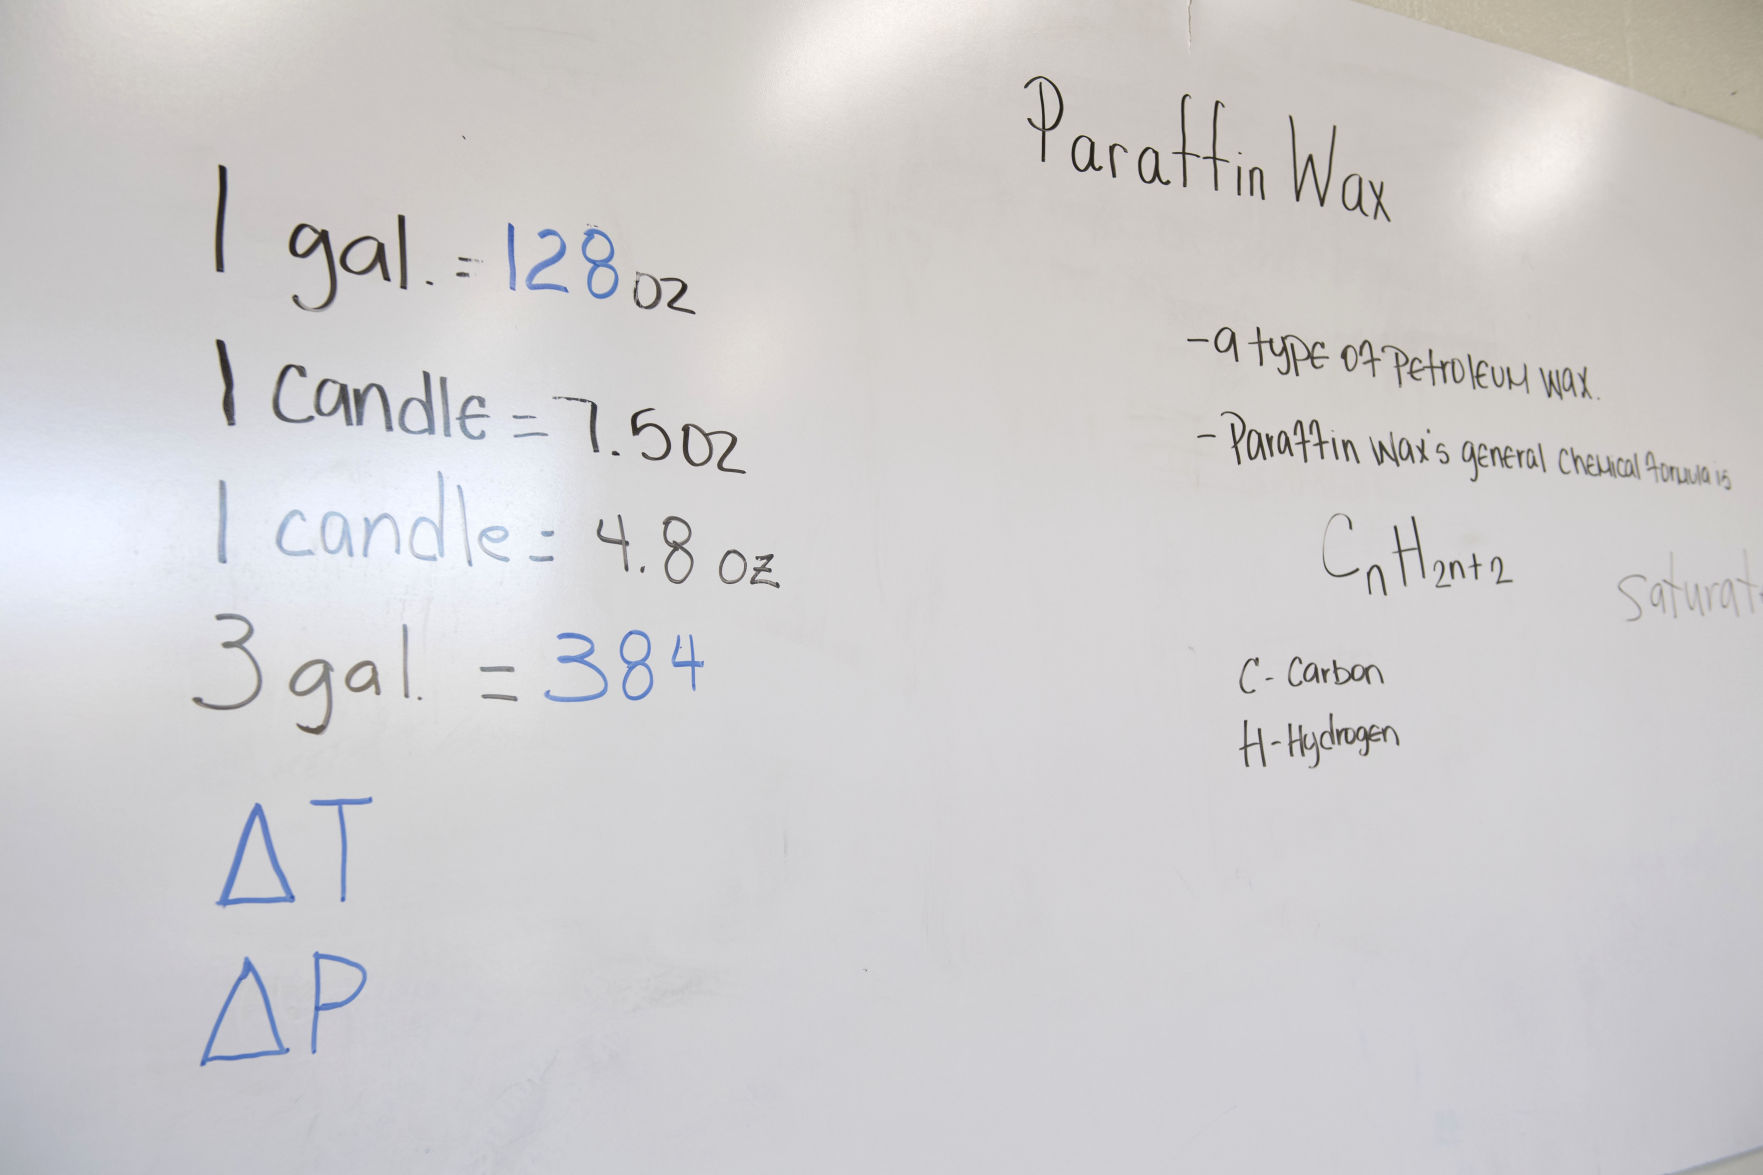 1 gal. = 128 oz
1 candle = 7.5 oz
1 candle = 4.8 oz
3 gal. = 384
ΔT
ΔP
Paraffin Wax
- a type of Petroleum wax.
- Paraffin Wax's general chemical formula is
CnH2n+2
Saturat
C - Carbon
H - Hydrogen